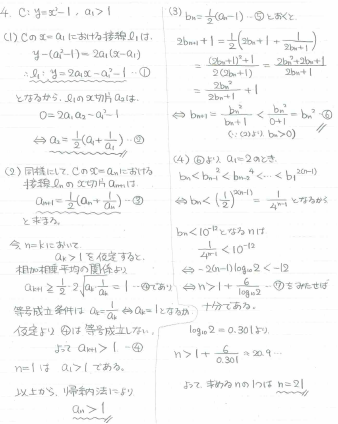 4. C: y=x²-1, a₁>1
(1) Cのx=a₁における接線l₁は,
y-(a₁²-1)=2a₁(x-a₁)
∴ l₁: y=2a₁x-a₁²-1 …①
となるから, l₁のx切片a₂は,
0=2a₁a₂-a₁²-1
⇔ a₂=1/2(a₁+1/a₁) …②
(2) 同様にして Cのx=aₙにおける
接線lₙのx切片aₙ₊₁は,
aₙ₊₁=1/2(aₙ+1/aₙ) …③
と求まる。
今, n=kにおいて,
aₖ>1 を仮定すると,
相加相乗平均の関係より
aₖ₊₁≧1/2・2√(aₖ・1/aₖ)=1 …④であり
等号成立条件は aₖ=1/aₖ⇔aₖ=1となるが,
仮定より ④は等号成立しない。
よって aₖ₊₁>1 …④
n=1は a₁>1 である。
以上から, 帰納法により
aₙ>1
(3) bₙ=1/2(aₙ-1) …⑤とおくと,
2bₙ₊₁+1=1/2(2bₙ+1+1/(2bₙ+1))
=((2bₙ+1)²+1)/(2(2bₙ+1))=(2bₙ²+2bₙ+1)/(2bₙ+1)
=2bₙ²/(2bₙ+1)+1
⇔ bₙ₊₁=bₙ²/(2bₙ+1)<bₙ²/(0+1)=bₙ² …⑥
(∵(2)より bₙ>0)
(4) ⑥より a₁=2のとき,
bₙ<bₙ₋₁²<bₙ₋₂⁴<…<b₁^(2(n-1))
⇔ bₙ<(1/2)^(2(n-1))=1/4ⁿ⁻¹ となるから
bₙ<10⁻¹²となるnは
1/4ⁿ⁻¹<10⁻¹²
⇔ -2(n-1)log₁₀2<-12
⇔ n>1+6/log₁₀2 …⑦をみたせば
十分である。
log₁₀2=0.301より
n>1+6/0.301=20.9…
よって 求めるnの1つは n=21